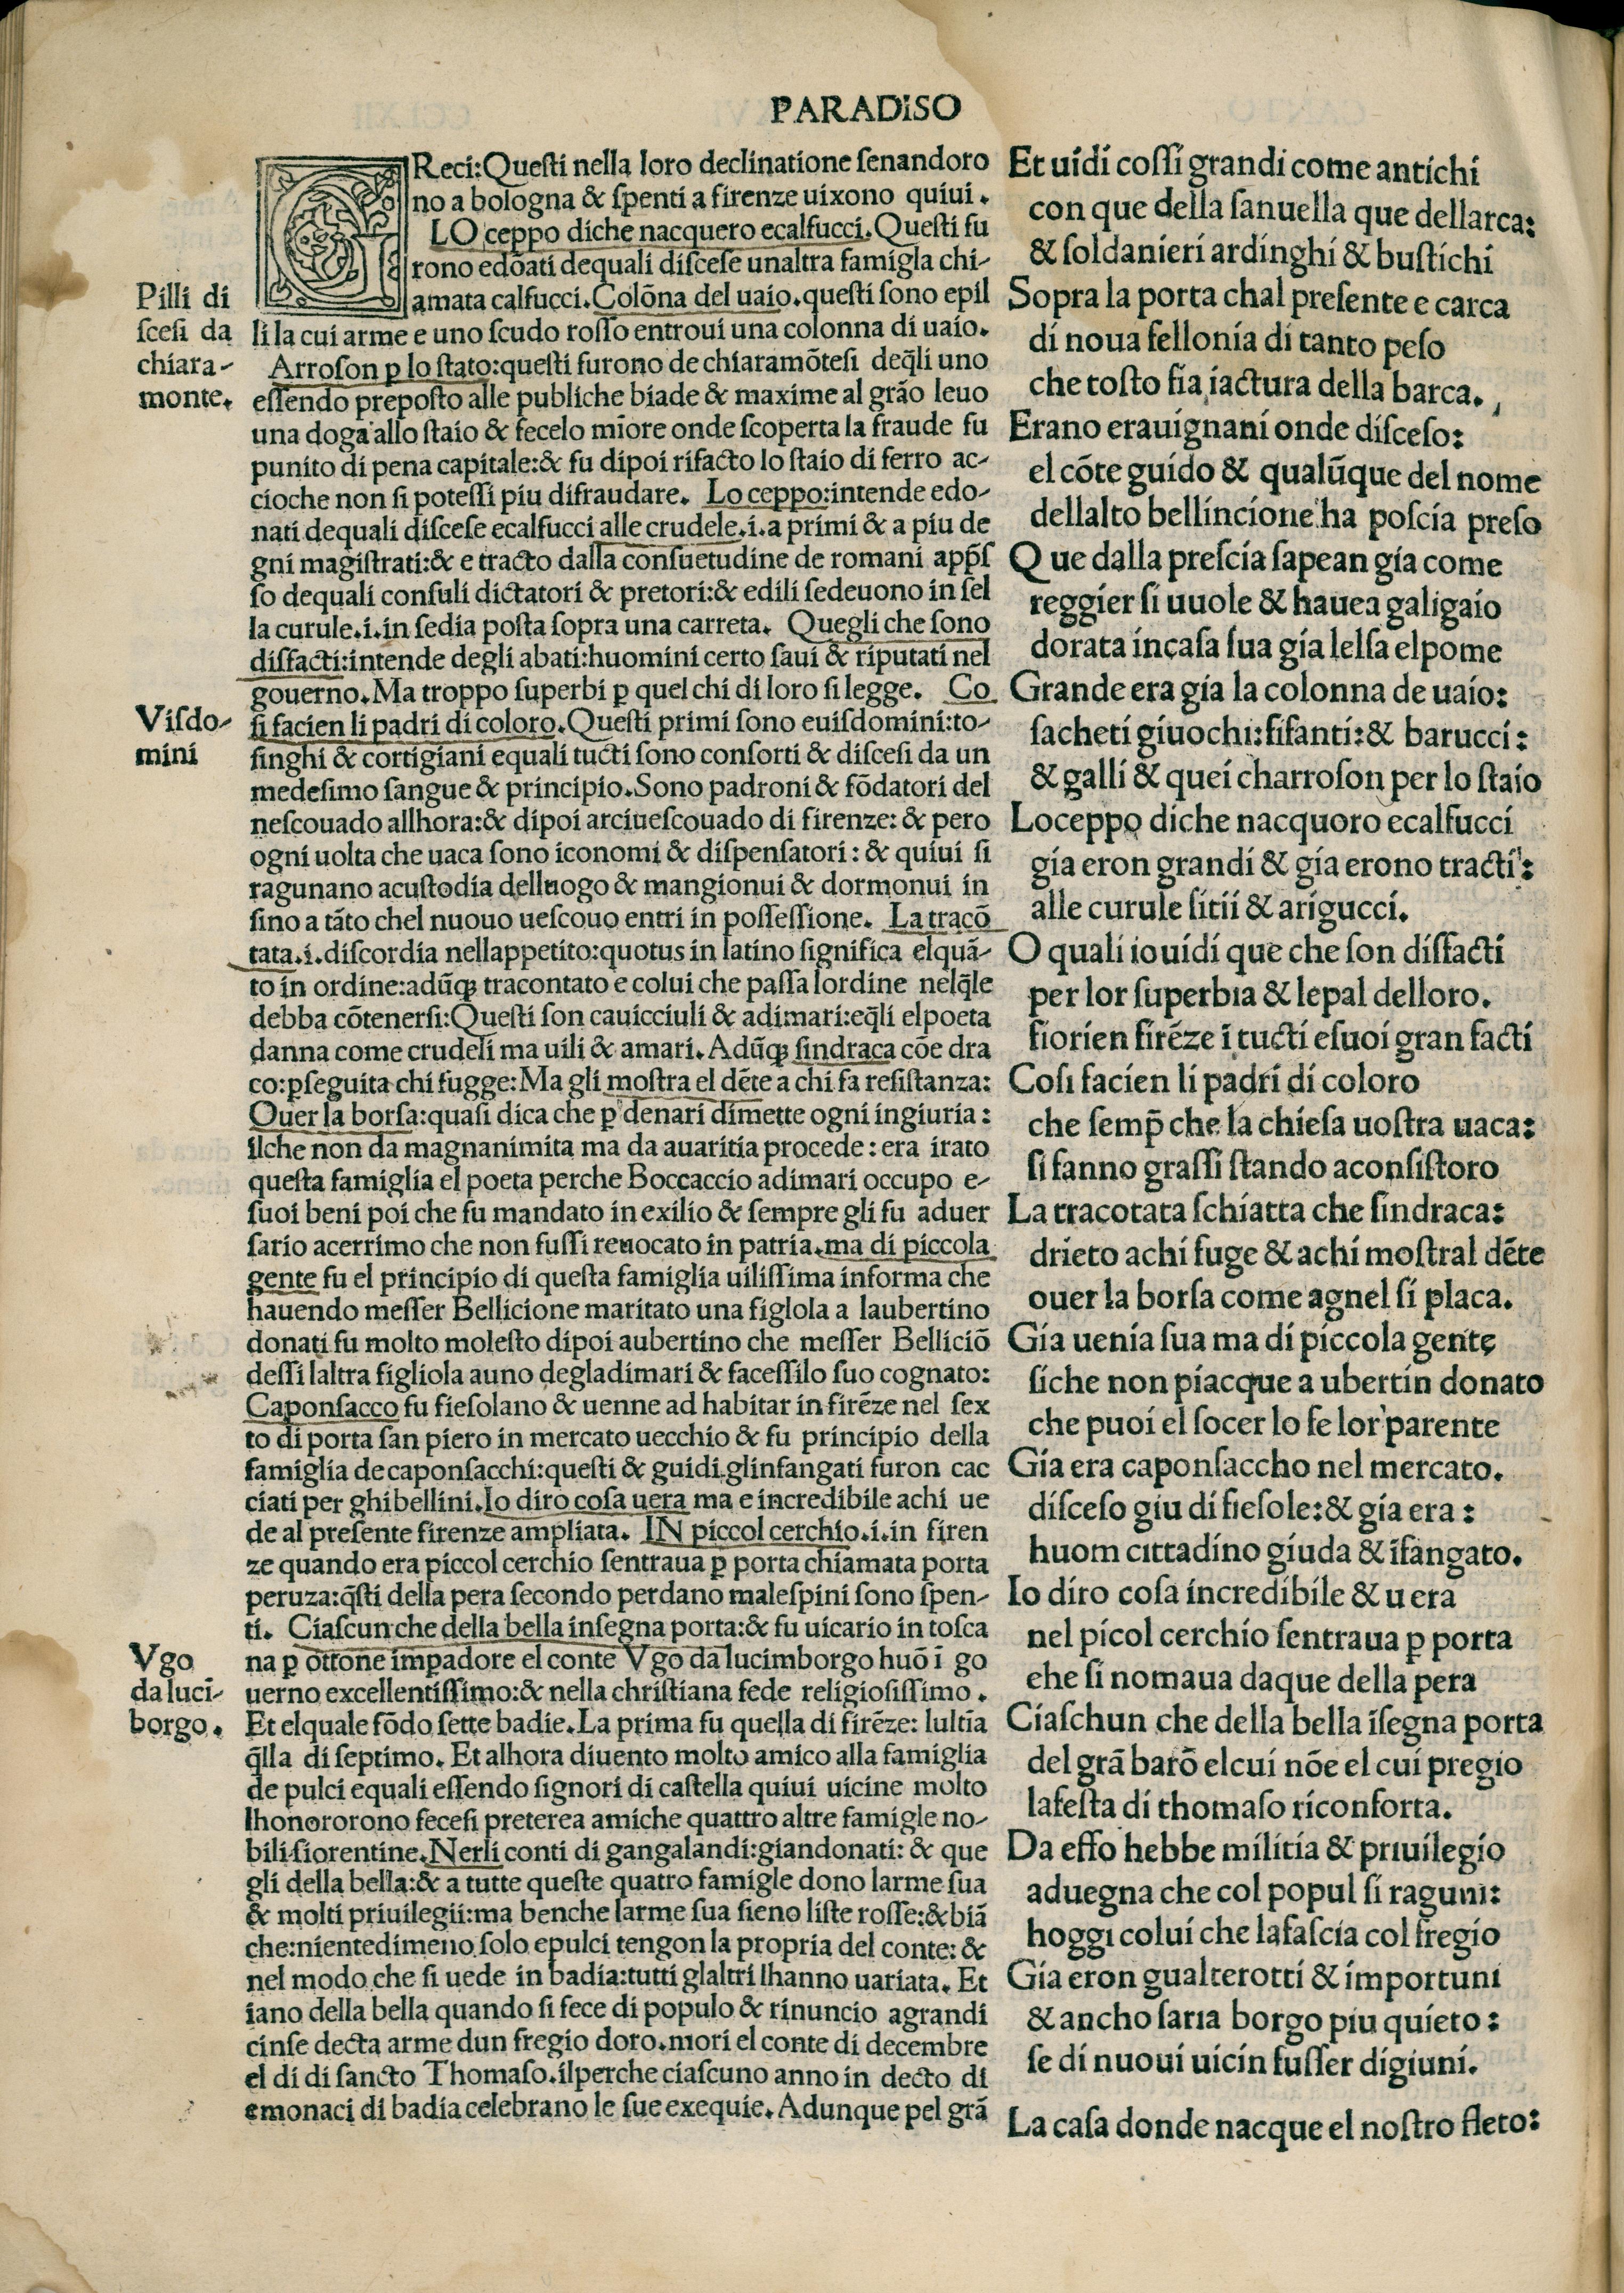 PARADISO
GReci:Questi nella loro declinatione senandoro
no a bologna & spenti a firenze uixono quiui.
LO ceppo diche nacquero ecalfucci.Questi fu
rono edōati dequali discese unaltra famigla chi-
amata calfucci.Colōna del uaio.questi sono epil
li la cui arme e uno scudo rosso entroui una colonna di uaio.
Arroson ꝑ lo stato:questi furono de chiaramōtesi deq̄li uno
essendo preposto alle publiche biade & maxime al grāo leuo
una doga allo staio & fecelo mīore onde scoperta la fraude fu
punito di pena capitale:& fu dipoi rifacto lo staio di ferro ac-
cioche non si potessi piu difraudare. Lo ceppo:intende edo-
nati dequali discese ecalfucci alle crudele.i.a primi & a piu de
gni magistrati:& e tracto dalla consuetudine de romani app̄s
so dequali consuli dictatori & pretori:& edili sedeuono in sel
la curule.i.in sedia posta sopra una carreta. Quegli che sono
disfacti:intende degli abati:huomini certo saui & riputati nel
gouerno.Ma troppo superbi ꝑ quel chi di loro si legge. Co
si facien li padri di coloro.Questi primi sono euisdomini:to-
singhi & cortigiani equali tucti sono consorti & discesi da un
medesimo sangue & principio.Sono padroni & fōdatori del
nescouado allhora:& dipoi arciuescouado di firenze: & pero
ogni uolta che uaca sono iconomi & dispensatori: & quiui si
ragunano acustodia delluogo & mangionui & dormonui in
sino a tāto chel nuouo uescouo entri in possessione. La tracō
tata.i.discordia nellappetito:quotus in latino significa elquā-
to in ordine:adūqꝫ tracontato e colui che passa lordine nelq̄le
debba cōtenersi:Questi son cauicciuli & adimari:eq̄li elpoeta
danna come crudeli ma uili & amari.Adūqꝫ sindraca cōe dra
co:ꝑseguita chi fugge:Ma gli mostra el dēte a chi fa resistanza:
Ouer la borsa:quasi dica che ꝑ denari dimette ogni ingiuria:
ilche non da magnanimita ma da auaritia procede: era irato
questa famiglia el poeta perche Boccaccio adimari occupo e-
suoi beni poi che fu mandato in exilio & sempre gli fu aduer
sario acerrimo che non fussi reuocato in patria.ma di piccola
gente fu el principio di questa famiglia uilissima informa che
hauendo messer Bellicione maritato una figlola a laubertino
donati fu molto molesto dipoi aubertino che messer Belliciō
dessi laltra figliola auno degladimari & facessilo suo cognato:
Caponsacco fu fiesolano & uenne ad habitar in firēze nel sex
to di porta san piero in mercato uecchio & fu principio della
famiglia decaponsacchi:questi & guidi glinfangati furon cac
ciati per ghibellini.Io diro cosa uera ma e incredibile achi ue
de al presente firenze ampliata. IN piccol cerchio.i.in firen
ze quando era piccol cerchio sentraua ꝑ porta chiamata porta
peruza:q̄sti della pera secondo perdano malespini sono spen-
ti. Ciascun che della bella insegna porta:& fu uicario in tosca
na ꝑ ottone imꝑadore el conte Vgo da lucimborgo huō ī go
uerno excellentissimo:& nella christiana fede religiosissimo.
Et elquale fōdo sette badie.La prima fu quella di firēze: lultīa
q̄lla di septimo. Et alhora diuento molto amico alla famiglia
de pulci equali essendo signori di castella quiui uicine molto
lhonororono fecesi preterea amiche quattro altre famigle no-
bili fiorentine.Nerli conti di gangalandi:giandonati: & que
gli della bella:& a tutte queste quatro famigle dono larme sua
& molti priuilegii:ma benche larme sua sieno liste rosse:& biā
che:nientedimeno solo epulci tengon la propria del conte: &
nel modo che si uede in badia:tutti glaltri lhanno uariata. Et
iano della bella quando si fece di populo & rinuncio agrandi
cinse decta arme dun fregio doro.mori el conte di decembre
el di di sancto Thomaso.ilperche ciascuno anno in decto di
emonaci di badia celebrano le sue exequie.Adunque pel grā
Pilli di
scesi da
chiara-
monte.
Visdo-
mini
Vgo
da luci-
borgo.
Et uidi cossi grandi come antichi
con que della sanuella que dellarca:
& soldanieri ardinghi & bustichi
Sopra la porta chal presente e carca
di noua fellonia di tanto peso
che tosto fia iactura della barca.
Erano erauignani onde disceso:
el cōte guido & qualūque del nome
dellalto bellincione ha poscia preso
Que dalla prescia sapean gia come
reggier si uuole & hauea galigaio
dorata incasa sua gia lelsa elpome
Grande era gia la colonna de uaio:
sacheti giuochi:fifanti:& barucci:
& galli & quei charroson per lo staio
Loceppo diche nacquoro ecalfucci
gia eron grandi & gia erono tracti:
alle curule sitii & arigucci.
O quali io uidi que che son disfacti
per lor superbia & lepal delloro.
fiorien firēze ī tucti esuoi gran facti
Cosi facien li padri di coloro
che semp̄ che la chiesa uostra uaca:
si fanno grassi stando aconsistoro
La tracotata schiatta che sindraca:
drieto achi fuge & achi mostral dēte
ouer la borsa come agnel si placa.
Gia uenia sua ma di piccola gente
siche non piacque a ubertin donato
che puoi el socer lo fe lor parente
Gia era caponsaccho nel mercato.
disceso giu di fiesole:& gia era:
huom cittadino giuda & īfangato.
Io diro cosa incredibile & uera
nel picol cerchio sentraua ꝑ porta
ehe si nomaua daque della pera
Ciaschun che della bella īsegna porta
del grā barō elcui nōe el cui pregio
lafesta di thomaso riconforta.
Da esso hebbe militia & priuilegio
aduegna che col popul si raguni:
hoggi colui che lafascia col fregio
Gia eron gualterotti & importuni
& ancho saria borgo piu quieto:
se di nuoui uicin fusser digiuni.
La casa donde nacque el nostro fleto: